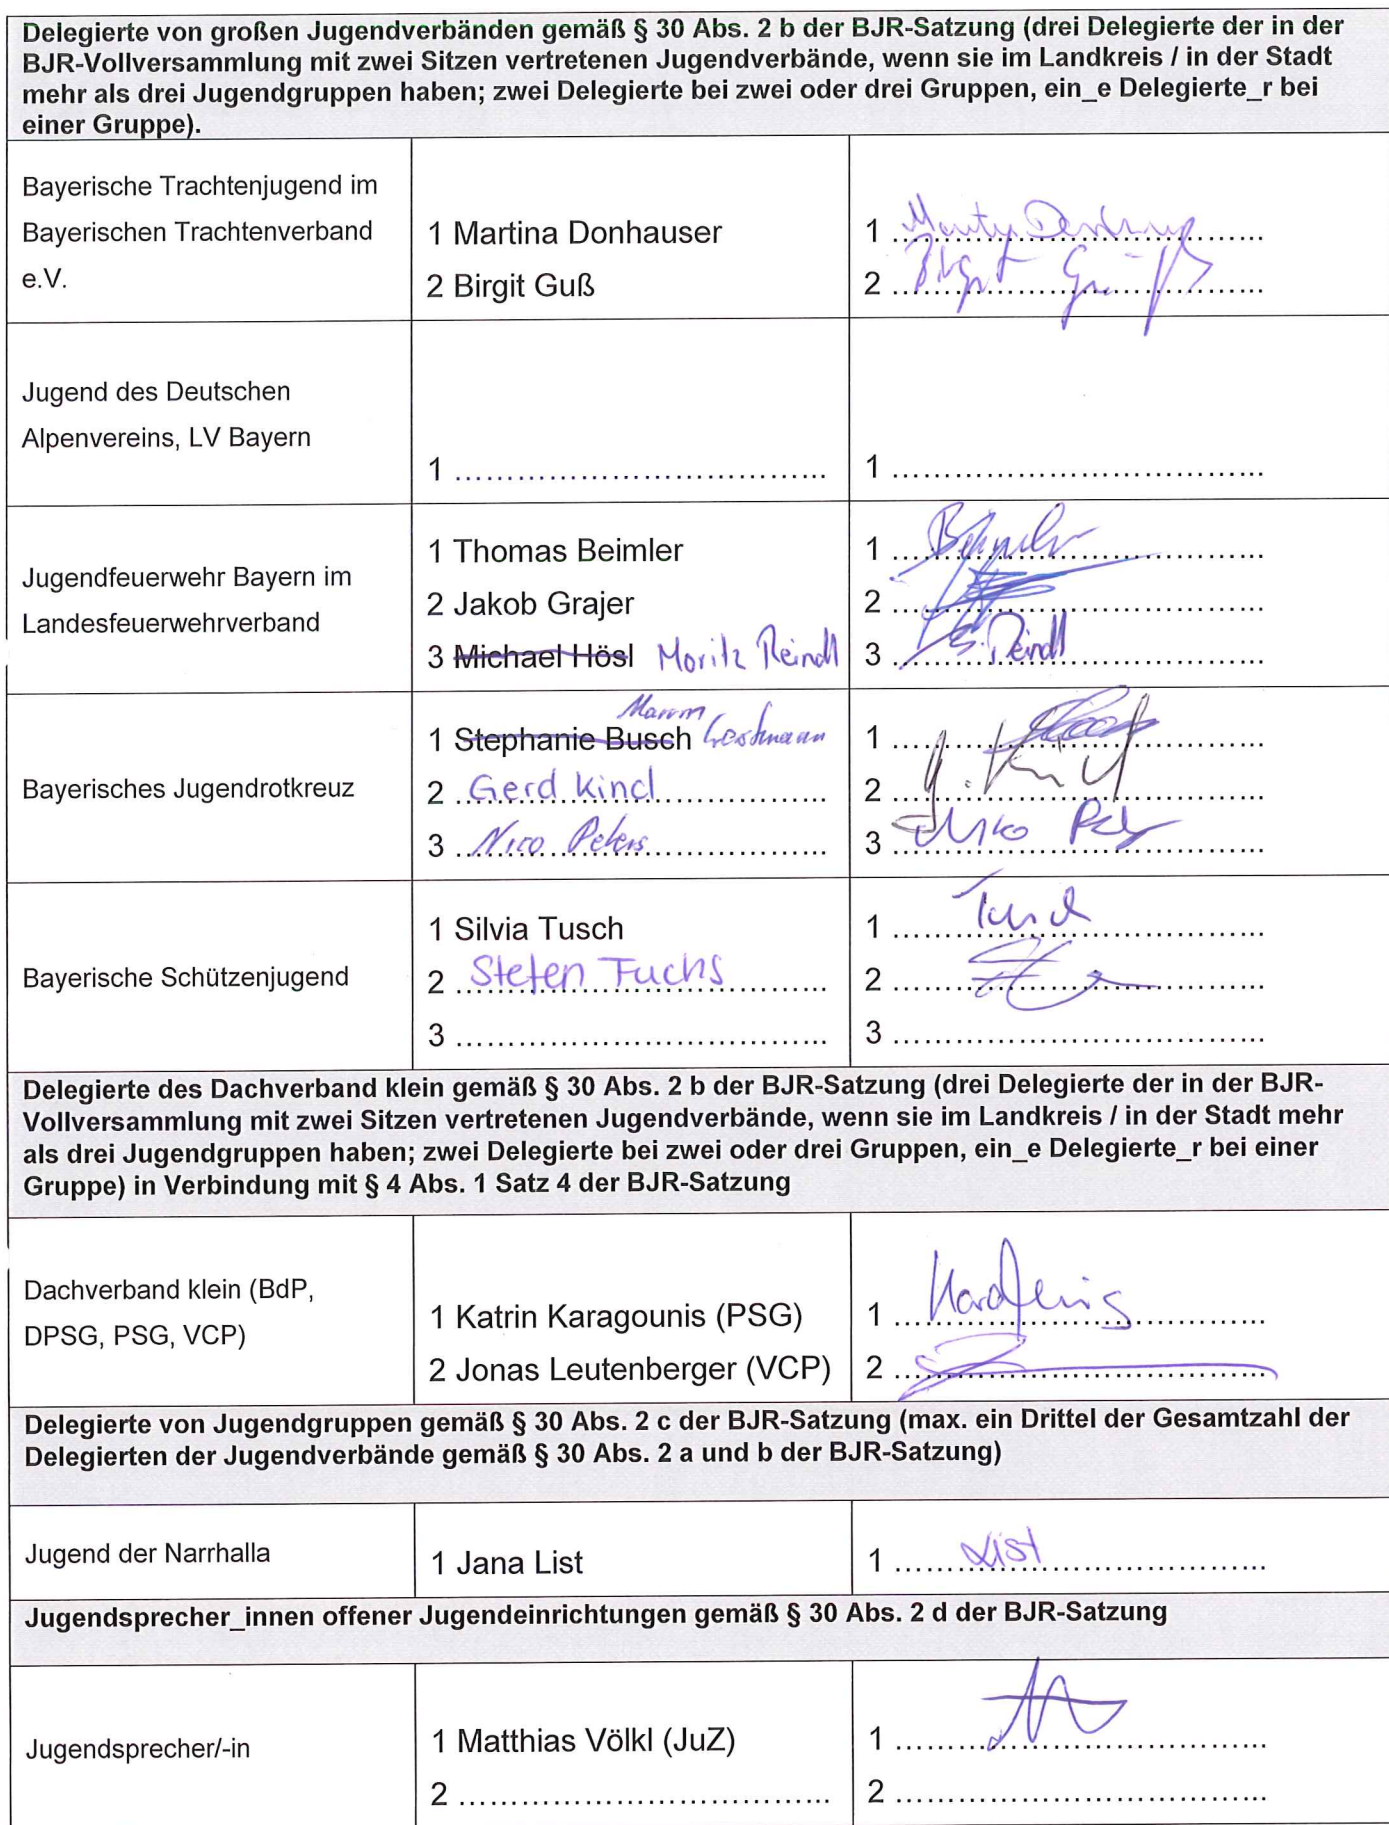 Delegierte von großen Jugendverbänden gemäß § 30 Abs. 2 b der BJR-Satzung (drei Delegierte der in der
BJR-Vollversammlung mit zwei Sitzen vertretenen Jugendverbände, wenn sie im Landkreis / in der Stadt
mehr als drei Jugendgruppen haben; zwei Delegierte bei zwei oder drei Gruppen, ein_e Delegierte_r bei
einer Gruppe).
Bayerische Trachtenjugend im
Bayerischen Trachtenverband
e.V.
1 Martina Donhauser
2 Birgit Guß
1
2 Birgit Guß
Jugend des Deutschen
Alpenvereins, LV Bayern
1 ....................................
1 ....................................
Jugendfeuerwehr Bayern im
Landesfeuerwehrverband
1 Thomas Beimler
2 Jakob Grajer
3 Michael Hösl Moritz Reindl
1 Beimler
2
3 Reindl
Bayerisches Jugendrotkreuz
1 Stephanie Busch
2 Gerd Kincl
3 Nico Peters
1
2
3 Nico
Bayerische Schützenjugend
1 Silvia Tusch
2 Stefen Fuchs
3 ....................................
1 Tusch
2
3 ....................................
Delegierte des Dachverband klein gemäß § 30 Abs. 2 b der BJR-Satzung (drei Delegierte der in der BJR-
Vollversammlung mit zwei Sitzen vertretenen Jugendverbände, wenn sie im Landkreis / in der Stadt mehr
als drei Jugendgruppen haben; zwei Delegierte bei zwei oder drei Gruppen, ein_e Delegierte_r bei einer
Gruppe) in Verbindung mit § 4 Abs. 1 Satz 4 der BJR-Satzung
Dachverband klein (BdP,
DPSG, PSG, VCP)
1 Katrin Karagounis (PSG)
2 Jonas Leutenberger (VCP)
1
2
Delegierte von Jugendgruppen gemäß § 30 Abs. 2 c der BJR-Satzung (max. ein Drittel der Gesamtzahl der
Delegierten der Jugendverbände gemäß § 30 Abs. 2 a und b der BJR-Satzung)
Jugend der Narrhalla
1 Jana List
1 List
Jugendsprecher_innen offener Jugendeinrichtungen gemäß § 30 Abs. 2 d der BJR-Satzung
Jugendsprecher/-in
1 Matthias Völkl (JuZ)
2 ....................................
1
2 ....................................